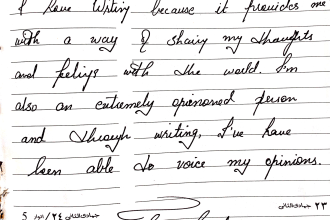 I love Writing because it provides me
with a way of sharing my thoughts
and feelings with the world. I'm
also an extremely opinionated person
and through writing, I've have
been able to voice my opinions.
٢٣ جمادى الثانى
جمادى الثانى ٢٤ / 5